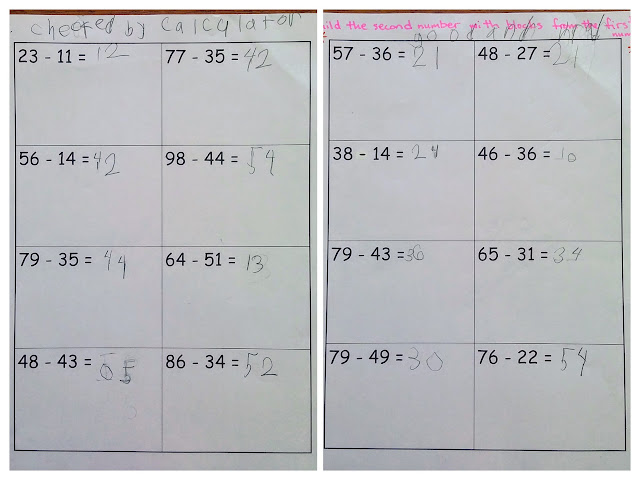 checked by calculator
23 - 11 = 12 77 - 35 = 42
56 - 14 = 42 98 - 44 = 54
79 - 35 = 44 64 - 51 = 13
48 - 43 = 05 86 - 34 = 52
ild the second number with blocks from the firs
num
57 - 36 = 21 48 - 27 = 21
38 - 14 = 24 46 - 36 = 10
79 - 43 = 36 65 - 31 = 34
79 - 49 = 30 76 - 22 = 54